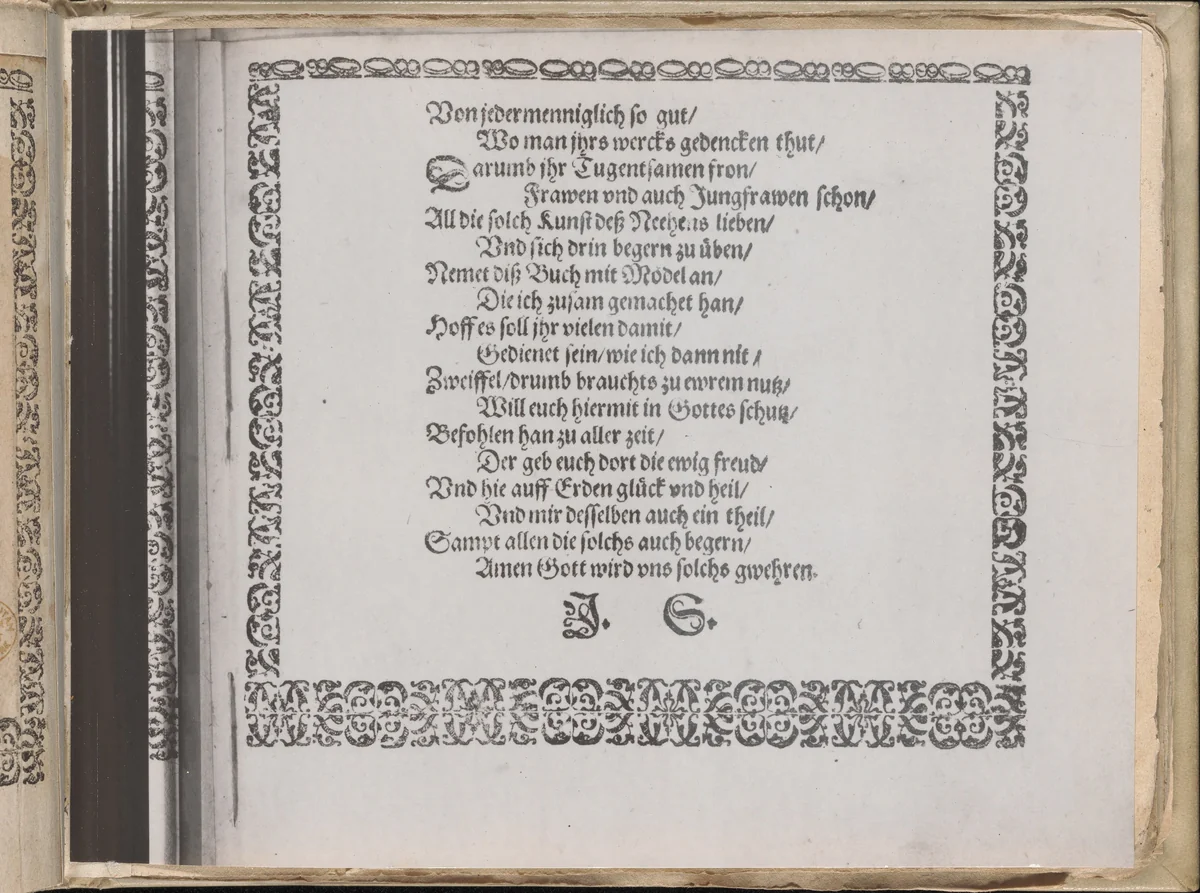 Von jedermenniglich so gut/
Wo man jhrs wercks gedencken thut/
Darumb jhr Tugentsamen fron/
Frawen vnd auch Jungfrawen schon/
All die solch Kunst deß Neehens lieben/
Vnd sich drin begern zu üben/
Nemet diß Buch mit Mödel an/
Die ich zusam gemachet han/
Hoff es soll jhr vielen damit/
Gedienet sein/wie ich dann nit/
Zweiffel/drumb brauchts zu ewrem nutz/
Will euch hiermit in Gottes schutz/
Befohlen han zu aller zeit/
Der geb euch dort die ewig freud/
Vnd hie auff Erden glück vnd heil/
Vnd mir desselben auch ein theil/
Sampt allen die solchs auch begern/
Amen Gott wird vns solchs gwehren.
J. S.